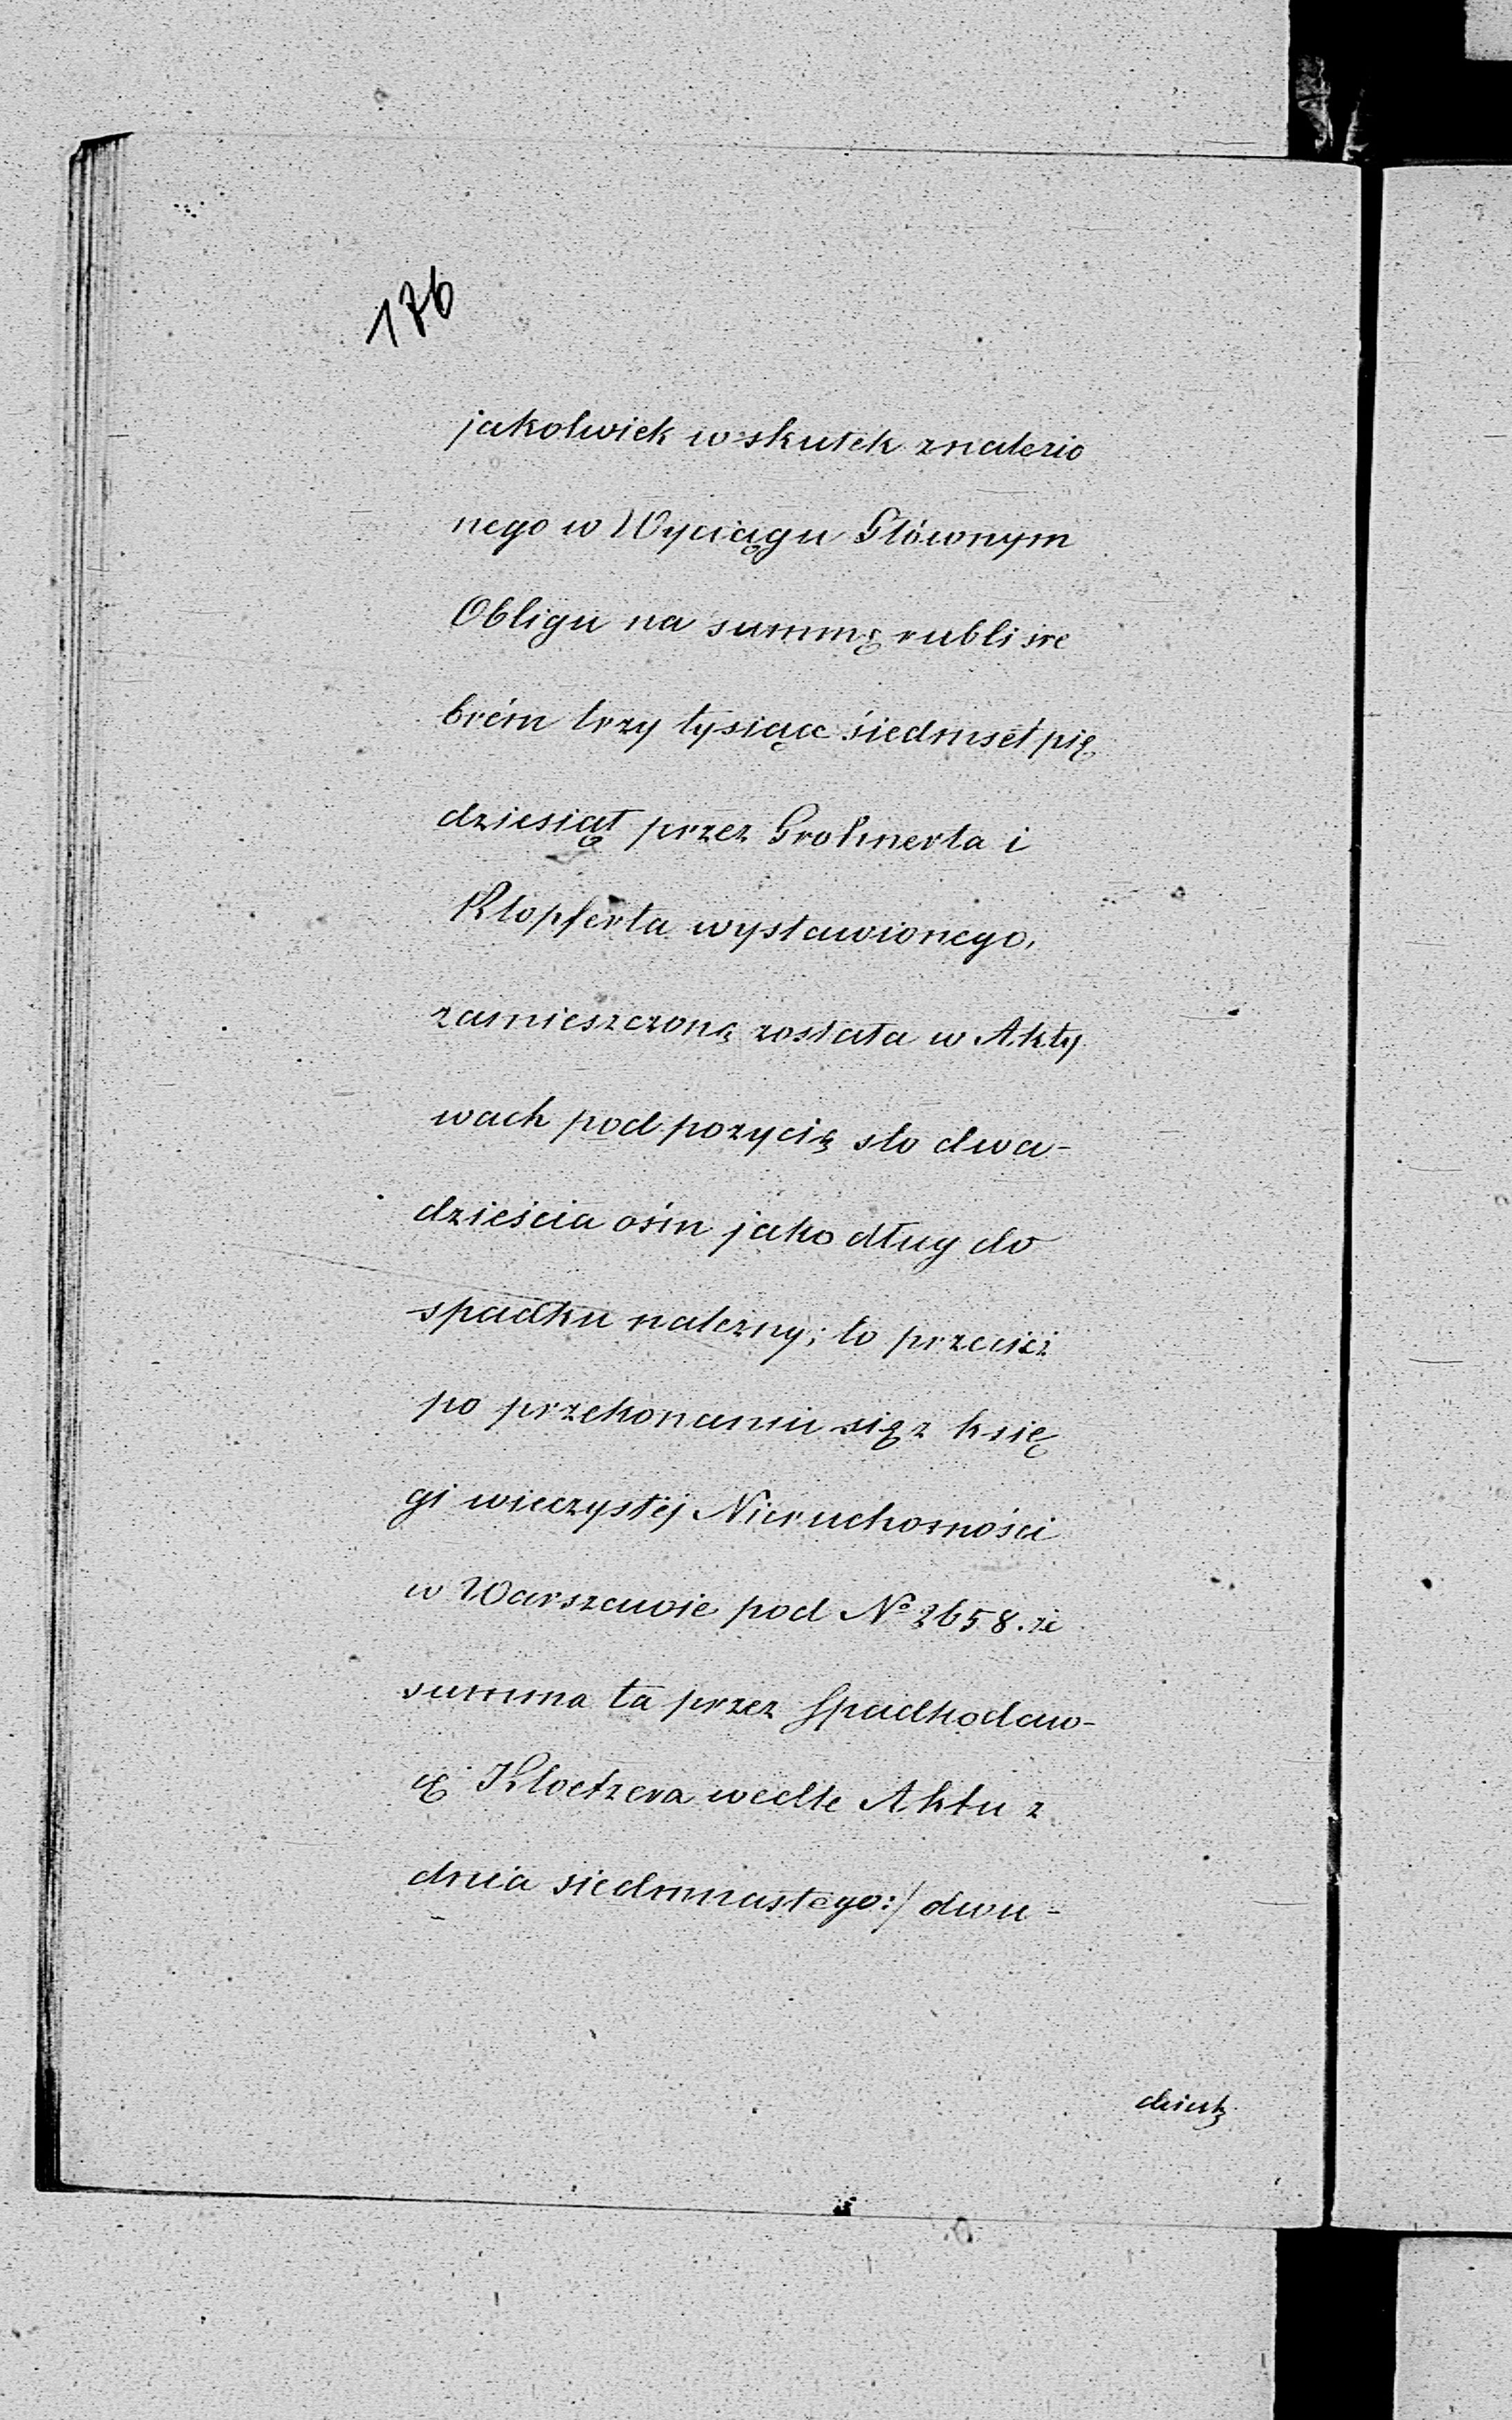 176
jakolwiek wskutek znalezio
nego w Wyciągu Głównym
Obligu na summę rubli sre
brém trzy tysiąc siedmset pię
dziesiąt przez Grohnerta i
Klopferta wystawionego,
zamieszczoną została w Akty
wach pod pozycią sto dwa-
dzieścia ośm jako dług do
spadku należny; to przecież
po przekonaniu się z księ
gi wieczystéj Nieruchomości
w Warszawie pod No 2658. że
summa ta przez Spadkodaw-
cę Kloetzera wedle Aktu z
dnia siedmnastego:/ dwu-